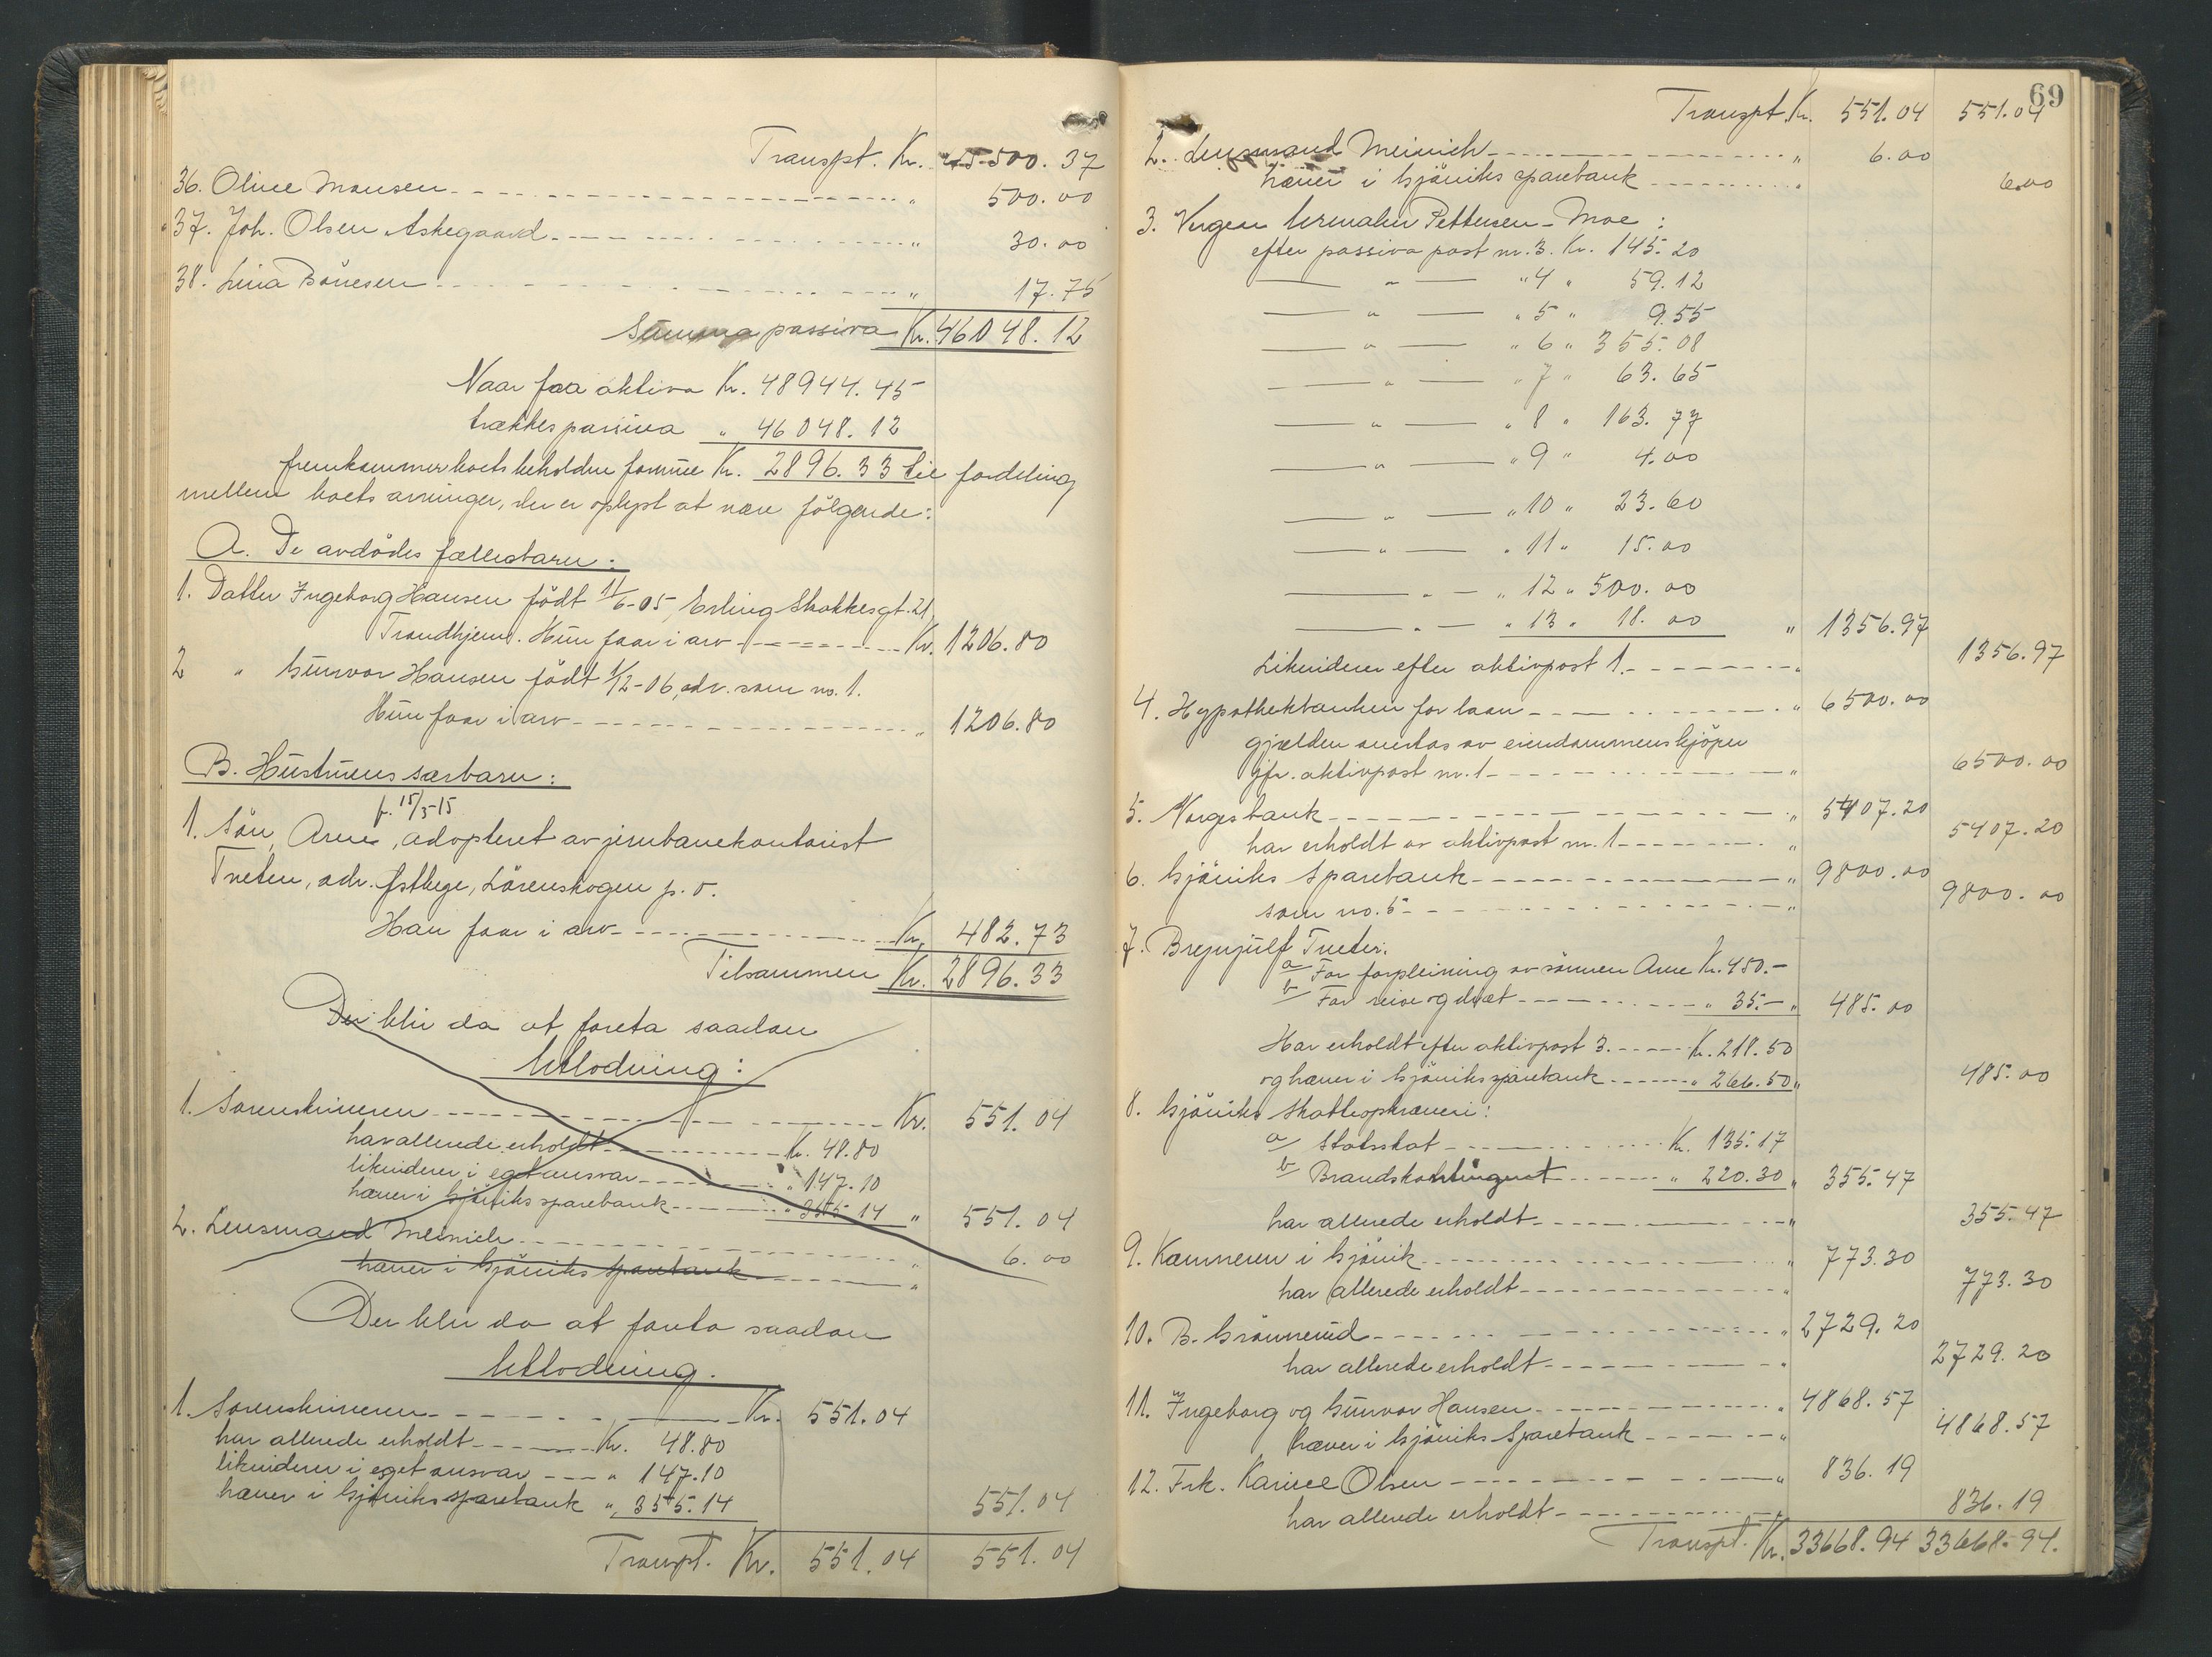 Transpt. Kr. 45500.37
36. Oline Monsen " 500.00
37. Joh. Olsen Askegaard " 30.00
38. Lina Bönesen " 17.75
Summa passiva Kr. 46048.12
Naar fra aktiva Kr. 48944.45
trækkes passiva " 46048.12
fremkommer boets beholdne formue Kr. 2896.33 til fordeling
mellem boets arvinger, der er oplyst at være følgende:
A. De avdödes fællesbarn:
1. Datter Ingeborg Hansen födt 11/6-05, Erling Skakkesgt. 21,
Trondhjem. Hun faar i arv Kr. 1206.80
2 " Gunvor Hansen födt 1/12-06, adr. som no. 1.
Hun faar i arv " 1206.80
B. Hustruens særbarn:
f. 15/3-15
1. Sön, Arne, adopteret av jernbanekontorist
Tveten, adr. Østhege, Lörenskogen p. o.
Han faar i arv Kr. 482.73
Tilsammen Kr. 2896.33
Der blir da at foreta saadan
Utlodning:
1. Sorenskriveren Kr. 551.04
har allerede erholdt Kr. 48.80
likviderer i eget ansvar " 147.10
hæver i Gjöviks sparebank " 355.14 " 551.04
2. Lensmand Meinich " 6.00
hæver i Gjöviks sparebank "
Der blir da at foreta saadan
Utlodning.
1. Sorenskriveren Kr. 551.04
har allerede erholdt Kr. 48.80
likviderer i eget ansvar " 147.10
hæver i Gjöviks sparebank " 355.14 551.04
Transpt. Kr. 551.04 551.04
69
Transpt. Kr. 551.04 551.04
2. Lensmand Meinich " 6.00
hæver i Gjöviks sparebank " 6.00
3. Vergen Pettersen-Moe:
efter passiva post nr. 3. Kr. 145.20
— " — " 4 " 59.12
— " — " 5 " 9.55
— " — " 6 " 355.08
— " — " 7 " 63.65
— " — " 8 " 163.77
— " — " 9 " 4.00
— " — " 10 " 23.60
— " — " 11 " 15.00
— " — " 12 " 500.00
— " — " 13 " 18.00 " 1356.97
Likviderer efter aktivpost 1. " 1356.97
4. Hypothekbanken for laan " 6500.00
gjælden overtas av eiendommens kjöper
jfr. aktivpost nr. 1 " 6500.00
5. Norges bank " 5407.20
har erholdt av aktivpost nr. 1 " 5407.20
6. Gjöviks Sparebank " 9800.00
som no. 5 " 9800.00
7. Brynjulf Tveter:
a/ For forpleining av sönnen Arne Kr. 450.-
b/ For reise og diæt " 35.- " 485.00
Har erholdt efter aktivpost 3. Kr. 218.50
og hæver i Gjöviks sparebank " 266.50 " 485.00
8. Gjöviks Skatteopkræveri:
a/ Statsskat Kr. 135.17
b/ Brandskontingent " 220.30 " 355.47
har allerede erholdt " 355.47
9. Kæmneren i Gjövik " 773.30
har allerede erholdt " 773.30
10. B. Grönnerud " 2729.20
har allerede erholdt " 2729.20
11. Ingeborg og Gunvor Hansen " 4868.57
hæver i Gjöviks Sparebank " 4868.57
12. Frk. Olsen " 836.19
har allerede erholdt " 836.19
Transpt. Kr. 33668.94 33668.94.